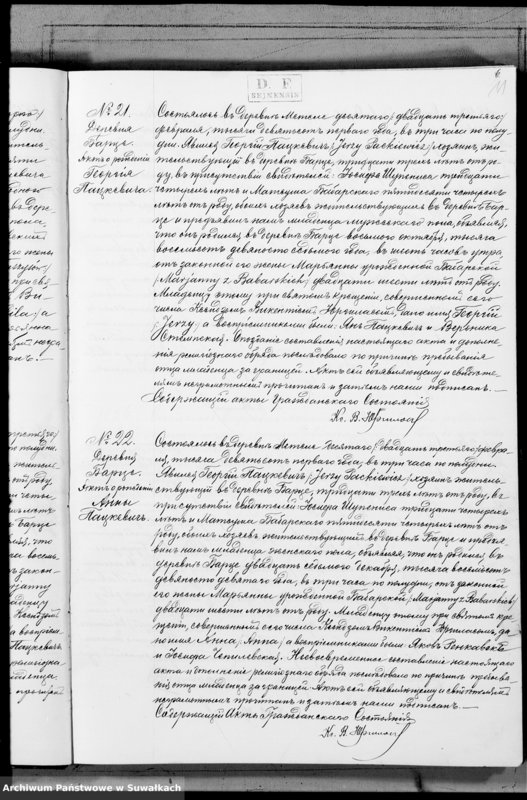 6
11
D. F.
SEJNENSIS
№ 21.
Деревня
Барце.
Актъ о рожденіи
Георгія
Пацкевича.
Состоялось въ деревнѣ Метеле десятаго / двадцать третьяго /
февраля, тысяча девятьсотъ перваго года, въ три часа по полу-
дни. Явился Георгій Пацкевичъ / Jerzy Packiewicz / хозяинъ, жи-
тельствующій въ деревнѣ Барце, тридцати трехъ лѣтъ отъ ро-
ду, въ присутствіи свидѣтелей: Іосифа Шупениса тридцати
четырехъ лѣтъ и Матеуша Бабарскаго пятидесяти четырехъ
лѣтъ отъ роду, обоихъ хозяевъ жительствующихъ въ деревнѣ Бар-
це и предъявилъ намъ младенца мужескаго пола, объявляя,
что онъ родился въ деревнѣ Барце восьмого октября, тысяча
восемьсотъ девяносто седьмого года, въ шесть часовъ утра,
отъ законной его жены Марьянны урожденной Бабарской
/ Marjanny z Babarskich / двадцати шести лѣтъ отъ роду.
Младенцу этому при святомъ крещеніи, совершенномъ сего
числа Ксендзомъ Викентіемъ, дано имя Георгій
/ Jerzy /, а воспріемниками были: Янъ Пацкевичъ и Вероника
Опозданіе составленія настоящаго акта и дополне-
нія религіознаго обряда послѣдовало по причинѣ пребыванія
отца младенца заграницей. Актъ сей объявляющему и свидѣте-
лямъ неграмотнымъ прочитанъ и затѣмъ нами подписанъ. —
Содержащій акты Гражданскаго Состоянія
Кс. В.
№ 22.
Деревня
Барце.
Актъ о рожденіи
Анны
Пацкевичъ.
Состоялось въ деревнѣ Метеле десятаго / двадцать третьяго / февра-
ля, тысяча девятьсотъ перваго года, въ три часа по полудни.
Явился Георгій Пацкевичъ / Jerzy Packiewicz / хозяинъ житель-
ствующій въ деревнѣ Барце, тридцати трехъ лѣтъ отъ роду, въ
присутствіи свидѣтелей Іосифа Шупениса тридцати четырехъ
лѣтъ и Матеуша Бабарскаго пятидесяти четырехъ лѣтъ отъ
роду, обоихъ хозяевъ жительствующихъ въ деревнѣ Барце и предъя-
вилъ намъ младенца женскаго пола, объявляя, что онъ родился въ
деревнѣ Барце двадцать седьмого декабря, тысяча восемьсотъ
девяносто девятаго года, въ три часа по полудни, отъ законной
его жены Марьянны урожденной Бабарской / Marjanny z Babarskich /
двадцати шести лѣтъ отъ роду. Младенцу этому при святомъ кре-
щеніи, совершенномъ сего числа Ксендзомъ Викентіемъ, да-
но имя Анна / Anna /, а воспріемниками были Яковъ
и Іосифа Несвоевременное составленіе настоящаго
акта и дополненіе религіознаго обряда послѣдовало по причинѣ пребыва-
нія отца младенца заграницей. Актъ сей объявляющему и свидѣтелямъ
неграмотнымъ прочитанъ и затѣмъ нами подписанъ. —
Содержащій Акты Гражданскаго Состоянія
Кс. В.
Archiwum Państwowe w Suwałkach